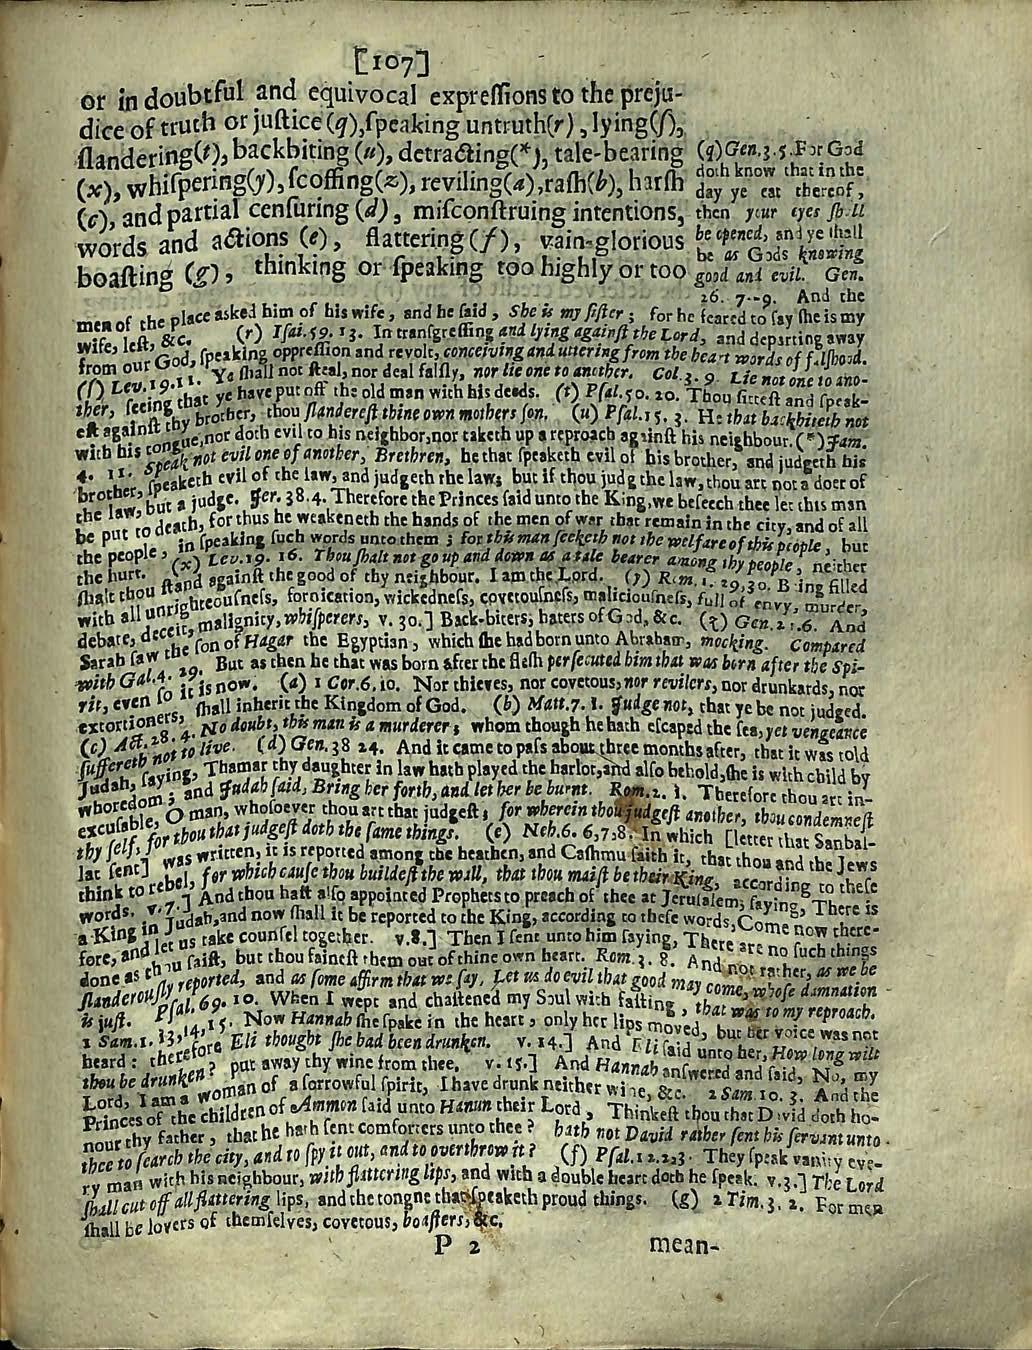 [107]
or in doubtful and equivocal expreſſions to the preju-
dice of truth or juſtice (q), ſpeaking untruth(r), lying(ſ),
ſlandering(t), backbiting (u), detracting(*), tale-bearing
(x), whiſpering(y), ſcoffing(z), reviling(a), raſh(b), harſh
(c), and partial cenſuring (d), miſconſtruing intentions,
words and actions (e), flattering (f), vain-glorious
boaſting (g), thinking or ſpeaking too highly or too
(q) Gen. 3. 5. For God
doth know that in the
day ye eat thereof,
then your eyes ſhall
be opened, and ye ſhall
be as Gods knowing
good and evil. Gen.
26. 7--9. And the
men of the place asked him of his wife, and he ſaid, She is my ſiſter; for he feared to ſay ſhe is my
wife, leſt, &c. (r) Iſai. 59. 13. In tranſgreſſing and lying againſt the Lord, and departing away
from our God, ſpeaking oppreſſion and revolt, conceiving and uttering from the heart words of falſhood.
(ſ) Lev. 19. 11. Ye ſhall not ſteal, nor deal falſly, nor lie one to another. Col. 3. 9. Lie not one to ano-
ther, ſeeing that ye have put off the old man with his deeds. (t) Pſal. 50. 20. Thou ſitteſt and ſpeak-
eſt againſt thy brother, thou ſlandereſt thine own mothers ſon. (u) Pſal. 15. 3. He that backbiteth not
with his tongue, nor doth evil to his neighbor, nor taketh up a reproach againſt his neighbour. (*) Jam.
4. 11. Speak not evil one of another, Brethren, he that ſpeaketh evil of his brother, and judgeth his
brother, ſpeaketh evil of the law, and judgeth the law; but if thou judg the law, thou art not a doer of
the law, but a judge. Jer. 38. 4. Therefore the Princes ſaid unto the King, we beſeech thee let this man
be put to death, for thus he weakeneth the hands of the men of war that remain in the city, and of all
the people, in ſpeaking ſuch words unto them; for this man ſeeketh not the welfare of this people, but
the hurt. (x) Lev. 19. 16. Thou ſhalt not go up and down as a tale bearer among thy people, neither
ſhalt thou ſtand againſt the good of thy neighbour. I am the Lord. (y) Rom. 1. 29, 30. Being filled
with all unrighteouſneſs, fornication, wickedneſs, covetouſneſs, maliciouſneſs, full of envy, murder,
debate, deceit, malignity, whiſperers, v. 30.] Back-biters, haters of God, &c. (z) Gen. 21. 6. And
Sarah ſaw the ſon of Hagar the Egyptian, which ſhe had born unto Abraham, mocking. Compared
with Gal. 4. 29. But as then he that was born after the fleſh perſecuted him that was born after the Spi-
rit, even ſo it is now. (a) 1 Cor. 6. 10. Nor thieves, nor covetous, nor revilers, nor drunkards, nor
extortioners, ſhall inherit the Kingdom of God. (b) Matt. 7. 1. Judge not, that ye be not judged.
(c) Act. 28. 4. No doubt, this man is a murderer; whom though he hath eſcaped the ſea, yet vengeance
ſuffereth not to live. (d) Gen. 38 24. And it came to paſs about three months after, that it was told
Judah, ſaying, Thamar thy daughter in law hath played the harlot, and alſo behold, ſhe is with child by
whoredom; and Judah ſaid, Bring her forth, and let her be burnt. Rom. 2. 1. Therefore thou art in-
excuſable, O man, whoſoever thou art that judgeſt; for wherein thou judgeſt another, thou condemneſt
thy ſelf, for thou that judgeſt doth the ſame things. (e) Neh. 6. 6, 7, 8. In which [letter that Sanbal-
lat ſent] was written, it is reported among the heathen, and Caſhmu ſaith it, that thou and the Jews
think to rebel, for which cauſe thou buildeſt the wall, that thou maiſt be their King, according to theſe
words. v. 7.] And thou haſt alſo appointed Prophets to preach of thee at Jeruſalem, ſaying, There is
a King in Judah, and now ſhall it be reported to the King, according to theſe words, Come now there-
fore, and let us take counſel together. v. 8.] Then I ſent unto him ſaying, There are no ſuch things
done as thou ſaiſt, but thou faineſt them out of thine own heart. Rom. 3. 8. And not rather, as we be
ſlanderouſly reported, and as ſome affirm that we ſay, Let us do evil that good may come, whoſe damnation
is juſt. Pſal. 69. 10. When I wept and chaſtened my Soul with faſting, that was to my reproach.
1 Sam. 1. 13, 14, 15. Now Hannah ſhe ſpake in the heart, only her lips moved, but her voice was not
heard: therefore Eli thought ſhe had been drunken. v. 14.] And Eli ſaid unto her, How long wilt
thou be drunken? put away thy wine from thee. v. 15.] And Hannah anſwered and ſaid, No, my
Lord, I am a woman of a ſorrowful ſpirit, I have drunk neither wine, &c. 2 Sam. 10. 3. And the
Princes of the children of Ammon ſaid unto Hanun their Lord, Thinkeſt thou that David doth ho-
nour thy father, that he hath ſent comforters unto thee? hath not David rather ſent his ſervant unto
thee to ſearch the city, and to ſpy it out, and to overthrow it? (f) Pſal. 12. 2, 3. They ſpeak vanity eve-
ry man with his neighbour, with flattering lips, and with a double heart doth he ſpeak. v. 3.] The Lord
ſhall cut off all flattering lips, and the tongne that ſpeaketh proud things. (g) 2 Tim. 3. 2. For men
ſhall be lovers of themſelves, covetous, boaſters, &c.
P 2 mean-